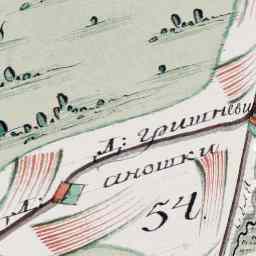 Д: гришневи
аношки
54.
Д: